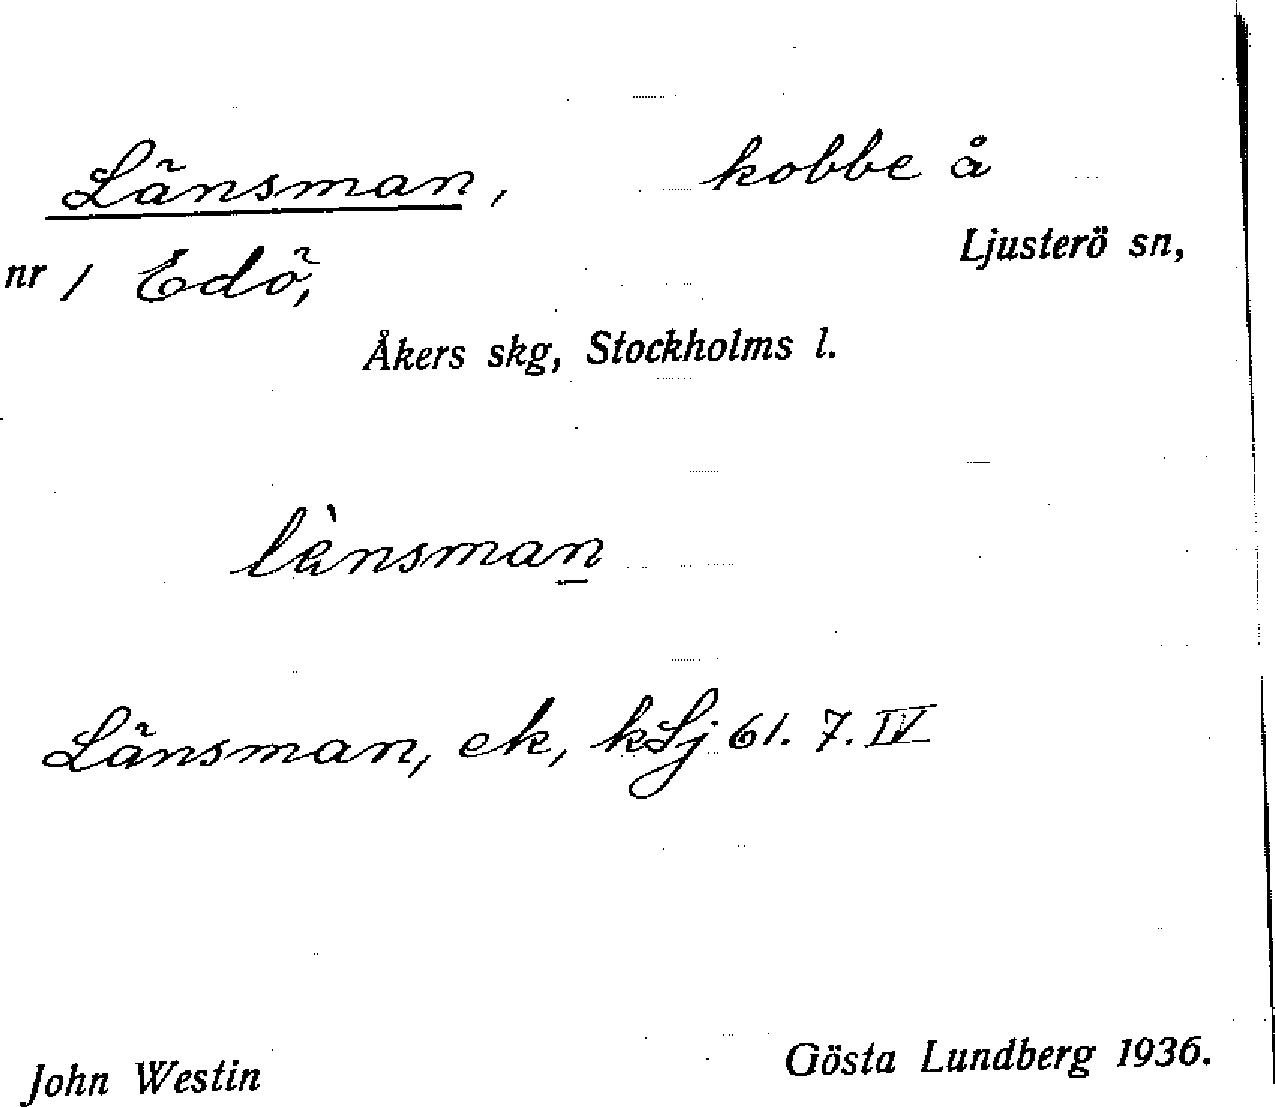 Länsman, kobbe å
Ljusterö sn,
nr 1 Edö,
Åkers skg, Stockholms l.
lànsman
Länsman, ek, kLj 61. 7. IV
John Westin
Gösta Lundberg 1936.